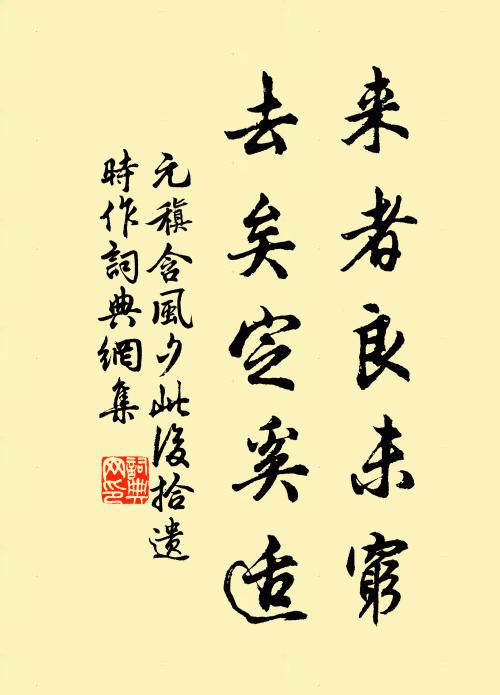 来者良未窮
去矣定奚适
元稹含風夕此後拾遺
時作詞典網集
詞典
网印